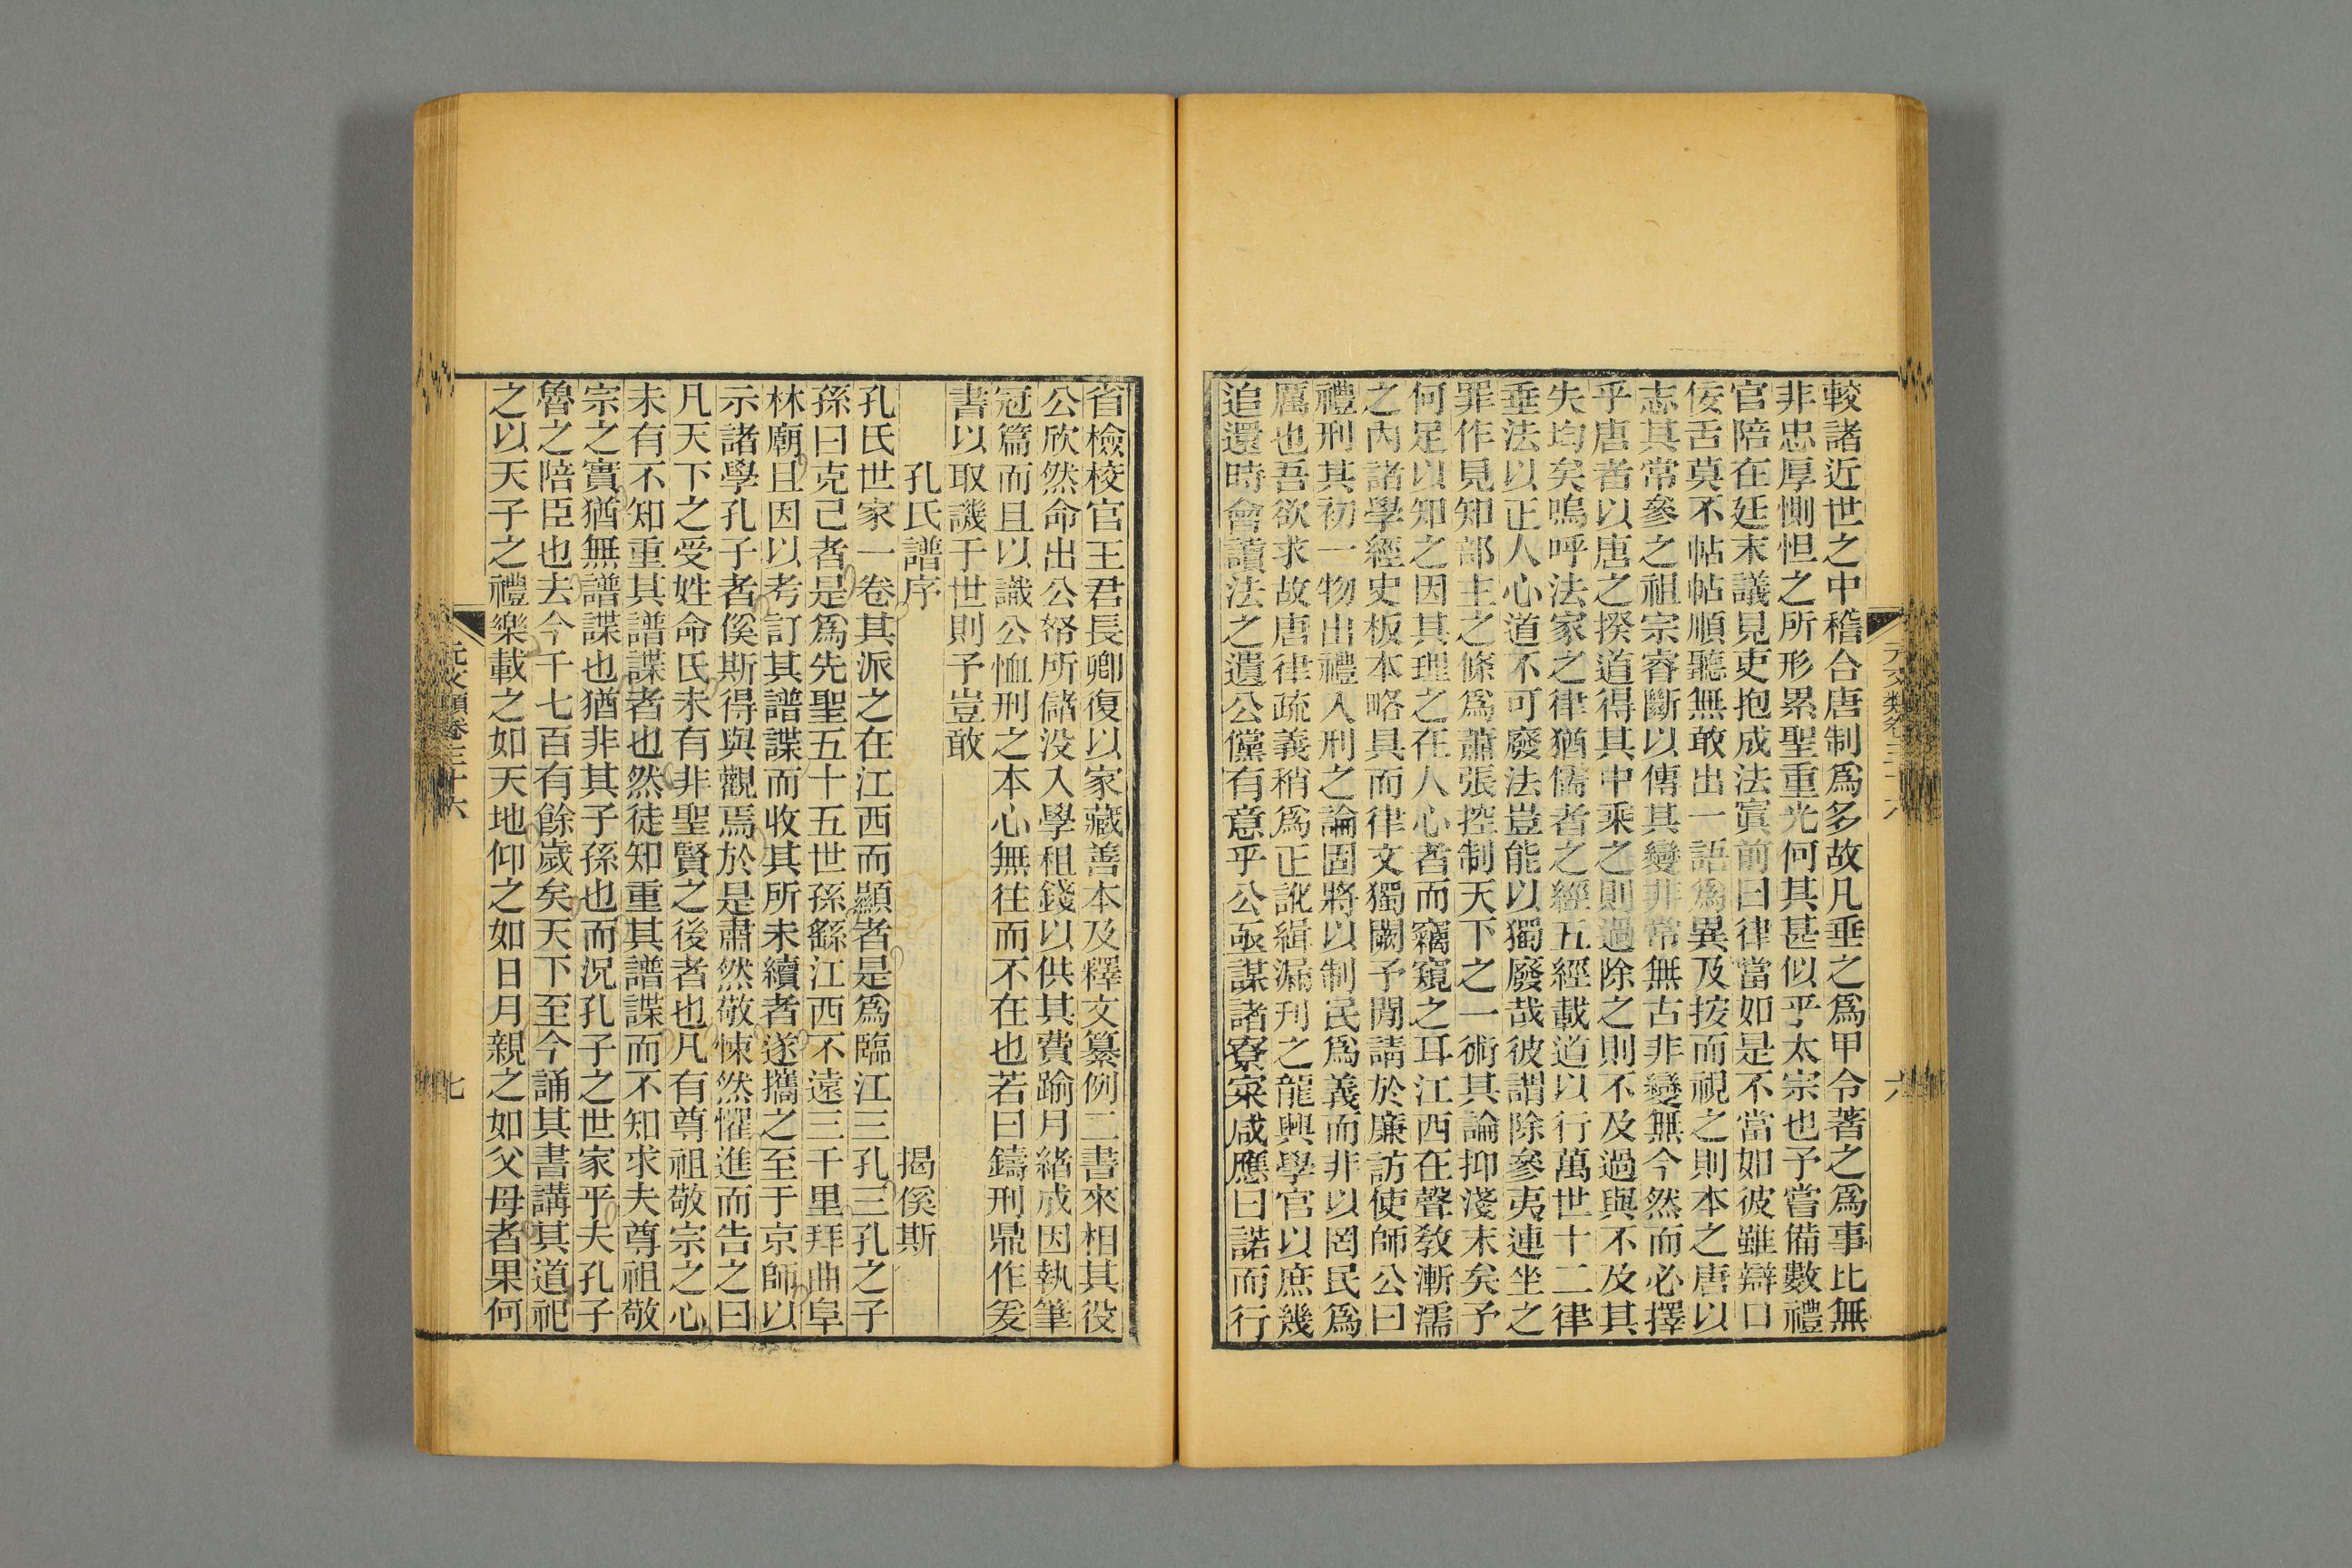 較諸近世之中稽合唐制爲多故凡垂之爲甲令著之爲事比無
非忠厚惻怛之所形累聖重光何其甚似乎太宗也予嘗備數禮
官陪在廷末議見吏抱成法寘前曰律當如是不當如彼雖辯口
佞舌莫不帖帖順聽無敢出一語爲異及按而視之則本之唐以
志其常參之祖宗睿斷以傳其變非常無古非變無今然而必擇
乎唐者以唐之揆道得其中乘之則過除之則不及過與不及其
失均矣嗚呼法家之律猶儒者之經五經載道以行萬世十二律
垂法以正人心道不可廢法豈能以獨廢哉彼謂除參夷連坐之
罪作見知部主之條爲蕭張控制天下之一術其論抑淺末矣予
何足以知之因其理之在人心者而竊窺之耳江西在聲敎漸濡
之內諸學經史板本略具而律文獨闕予閒請於廉訪使師公曰
禮刑其初一物出禮入刑之論固將以制民爲義而非以罔民爲
厲也吾欲求故唐律疏義稍爲正訛緝漏刊之龍興學官以庶幾
追還時會讀法之遺公儻有意乎公亟謀諸寮寀咸應曰諾而行
省檢校官王君長卿復以家藏善本及釋文纂例二書來相其役
公欣然命出公帑所儲没入學租錢以供其費踰月緒成因執筆
冠篇而且以識公恤刑之本心無往而不在也若曰鑄刑鼎作爰
書以取譏于世則予豈敢
孔氏譜序
揭傒斯
孔氏世家一卷其派之在江西而顯者是爲臨江三孔三孔之子
孫曰克己者是爲先聖五十五世孫繇江西不遠三千里拜曲阜
林廟且因以考訂其譜諜而收其所未續者遂攜之至于京師以
示諸學孔子者傒斯得與觀焉於是肅然敬悚然懼進而告之曰
凡天下之受姓命氏未有非聖賢之後者也凡有尊祖敬宗之心
未有不知重其譜諜者也然徒知重其譜諜而不知求夫尊祖敬
宗之實猶無譜諜也猶非其子孫也而況孔子之世家乎夫孔子
魯之陪臣也去今千七百有餘歲矣天下至今誦其書講其道祀
之以天子之禮樂載之如天地仰之如日月親之如父母者果何
元文類卷三十六
七